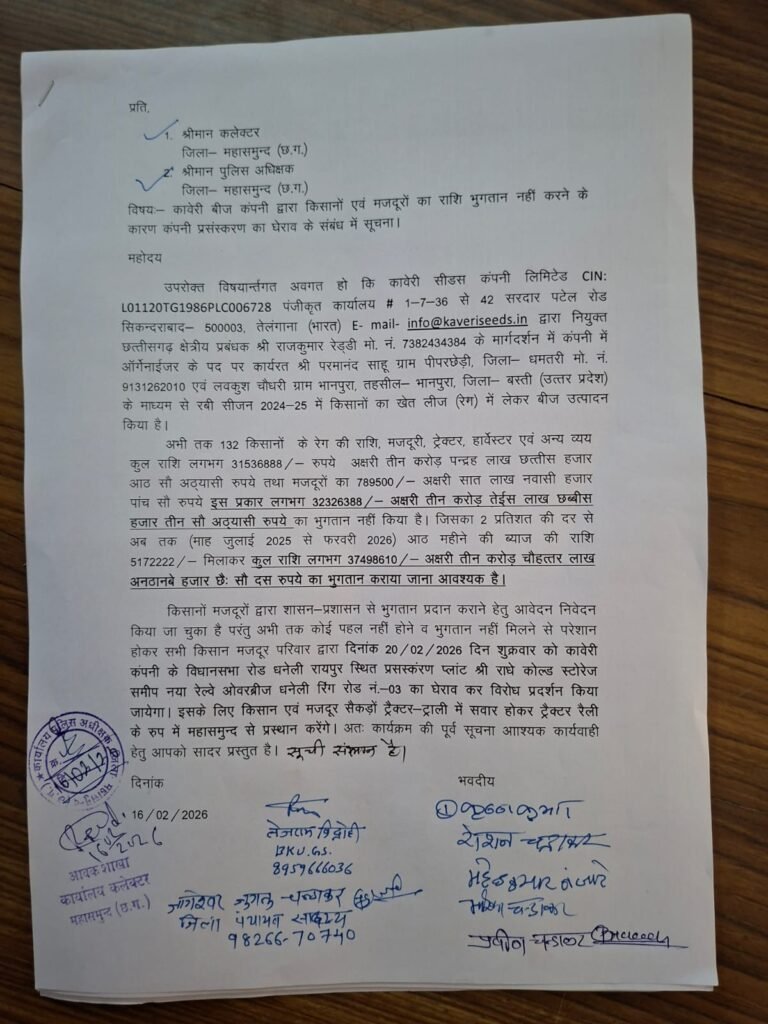 प्रति,
1. श्रीमान कलेक्टर
जिला– महासमुन्द (छ.ग.)
2. श्रीमान पुलिस अधिक्षक
जिला– महासमुन्द (छ.ग.)
विषयः– कावेरी बीज कंपनी द्वारा किसानों एवं मजदूरों का राशि भुगतान नहीं करने के
कारण कंपनी प्रसंस्करण का घेराव के संबंध में सूचना।
महोदय
उपरोक्त विषयार्न्तगत अवगत हो कि कावेरी सीडस कंपनी लिमिटेड CIN:
L01120TG1986PLC006728 पंजीकृत कार्यालय # 1-7-36 से 42 सरदार पटेल रोड
सिकन्दराबाद– 500003, तेलंगाना (भारत) E- mail- info@kaveriseeds.in द्वारा नियुक्त
छत्तीसगढ़ क्षेत्रीय प्रबंधक श्री राजकुमार रेड्डी मो. नं. 7382434384 के मार्गदर्शन में कंपनी में
ऑर्गेनाईजर के पद पर कार्यरत श्री परमानंद साहू ग्राम पीपरछेड़ी, जिला– धमतरी मो. नं.
9131262010 एवं लवकुश चौधरी ग्राम भानपुरा, तहसील– भानपुरा, जिला– बस्ती (उत्तर प्रदेश)
के माध्यम से रबी सीजन 2024-25 में किसानों का खेत लीज (रेग) में लेकर बीज उत्पादन
किया है।
अभी तक 132 किसानों के रेग की राशि, मजदूरी, ट्रेक्टर, हार्वेस्टर एवं अन्य व्यय
कुल राशि लगभग 31536888/– रुपये अक्षरी तीन करोड़ पन्द्रह लाख छत्तीस हजार
आठ सौ अठ्यासी रुपये तथा मजदूरों का 789500/– अक्षरी सात लाख नवासी हजार
पांच सौ रुपये इस प्रकार लगभग 32326388/– अक्षरी तीन करोड़ तेईस लाख छब्बीस
हजार तीन सौ अठ्यासी रुपये का भुगतान नहीं किया है। जिसका 2 प्रतिशत की दर से
अब तक (माह जुलाई 2025 से फरवरी 2026) आठ महीने की ब्याज की राशि
5172222/– मिलाकर कुल राशि लगभग 37498610/– अक्षरी तीन करोड़ चौहत्तर लाख
अनठानबे हजार छैः सौ दस रुपये का भुगतान कराया जाना आवश्यक है।
किसानों मजदूरों द्वारा शासन–प्रशासन से भुगतान प्रदान कराने हेतु आवेदन निवेदन
किया जा चुका है परंतु अभी तक कोई पहल नहीं होने व भुगतान नहीं मिलने से परेशान
होकर सभी किसान मजदूर परिवार द्वारा दिनांक 20/02/2026 दिन शुक्रवार को कावेरी
कंपनी के विधानसभा रोड धनेली रायपुर स्थित प्रसस्करंण प्लांट श्री राधे कोल्ड स्टोरेज
समीप नया रेल्वे ओवरब्रीज धनेली रिंग रोड नं.–03 का घेराव कर विरोध प्रदर्शन किया
जायेगा। इसके लिए किसान एवं मजदूर सैकड़ों ट्रैक्टर–ट्राली में सवार होकर ट्रैक्टर रैली
के रुप में महासमुन्द से प्रस्थान करेंगे। अतः कार्यक्रम की पूर्व सूचना आाश्यक कार्यवाही
हेतु आपको सादर प्रस्तुत है। सूची संलग्न है।
दिनांक
भवदीय
16/02/2026
तेजराम विद्रोही
BKU.GS.
8959666036
जागेश्वर जुगनू चन्द्राकर
जिला पंचायत सदस्य
98266-70740
रोशन चन्द्राकर
आवक शाखा
कार्यालय कलेक्टर
महासमुन्द (छ.ग.)